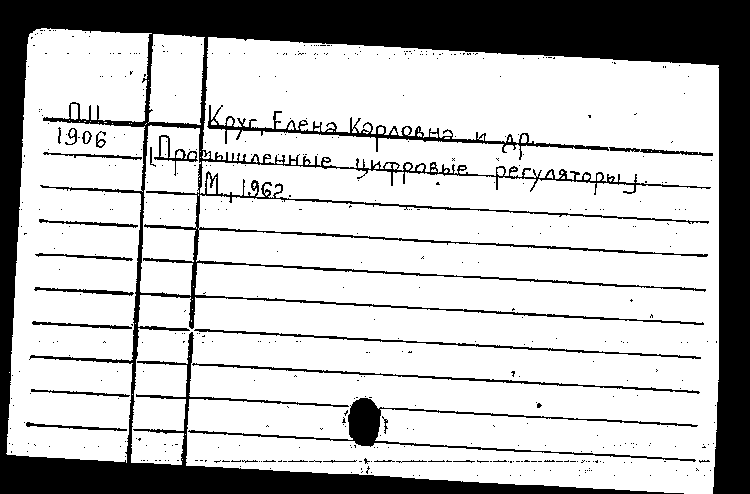 П.II Круг, Елена Карловна и др.
1906
[Промышленные цифровые регуляторы].
М., 1962.